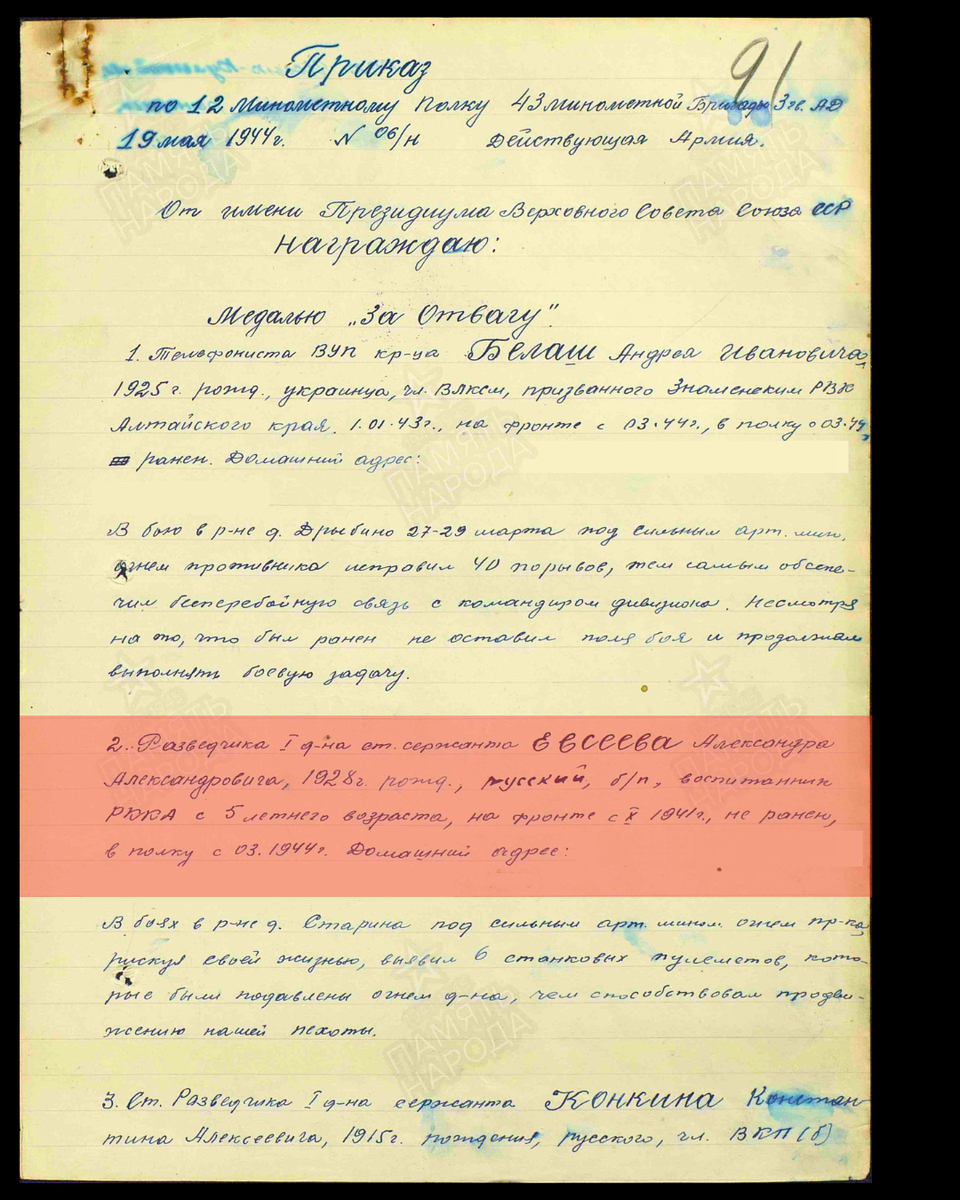 91
Приказ
по 12 Минометному Полку 43 минометной Бригады 3 гв. АД
19 мая 1944 г. N 06/н Действующая Армия.
От имени Президиума Верховного Совета Союза ССР
награждаю:
Медалью „За Отвагу".
1. Телефониста ВУП кр-ца БЕЛАШ Андрея Ивановича,
1925 г. рожд., украинца, чл. ВЛКСМ, призванного Знаменским РВК
Алтайского края. 1.01.43г., на фронте с 03.44г., в полку с 03.44,
ранен. Домашний адрес:
В бою в р-не д. Дрыбино 27-29 марта под сильным арт. мин.
огнем противника исправил 40 порывов, тем самым обеспе-
чил бесперебойную связь с командиром дивизиона. Несмотря
на то, что был ранен не оставил поля боя и продолжал
выполнять боевую задачу.
2. Разведчика I д-на ст. сержанта ЕВСЕЕВА Александра
Александровича, 1928г. рожд., русский, б/п, воспитанник
РККА с 5 летнего возраста, на фронте с X 1941г., не ранен,
в полку с 03.1944г. Домашний адрес:
В боях в р-не д. Старина под сильным арт. мином. огнем пр-ка,
рискуя своей жизнью, выявил 6 станковых пулеметов, кото-
рые были подавлены огнем д-на, чем способствовал продви-
жению нашей пехоты.
3. Ст. Разведчика I д-на сержанта КОНКИНА Констан-
тина Алексеевича, 1915г. рождения, русского, чл. ВКП(б)
ПАМЯТЬ НАРОДА